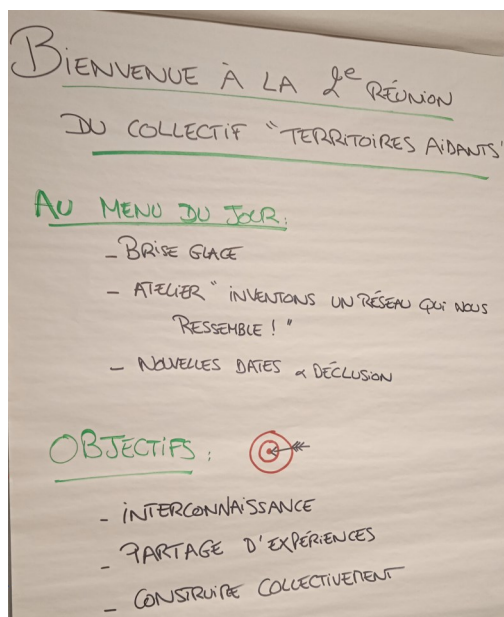 BIENVENUE À LA 2e RÉUNION
DU COLLECTIF "TERRITOIRES AIDANTS"
AU MENU DU JOUR:
- BRISE GLACE
- ATELIER "INVENTONS UN RÉSEAU QUI NOUS
RESSEMBLE!"
- NOUVELLES DATES & DÉCLUSION
OBJECTIFS:
- INTERCONNAISSANCE
- PARTAGE D'EXPÉRIENCES
- CONSTRUIRE COLLECTIVEMENT